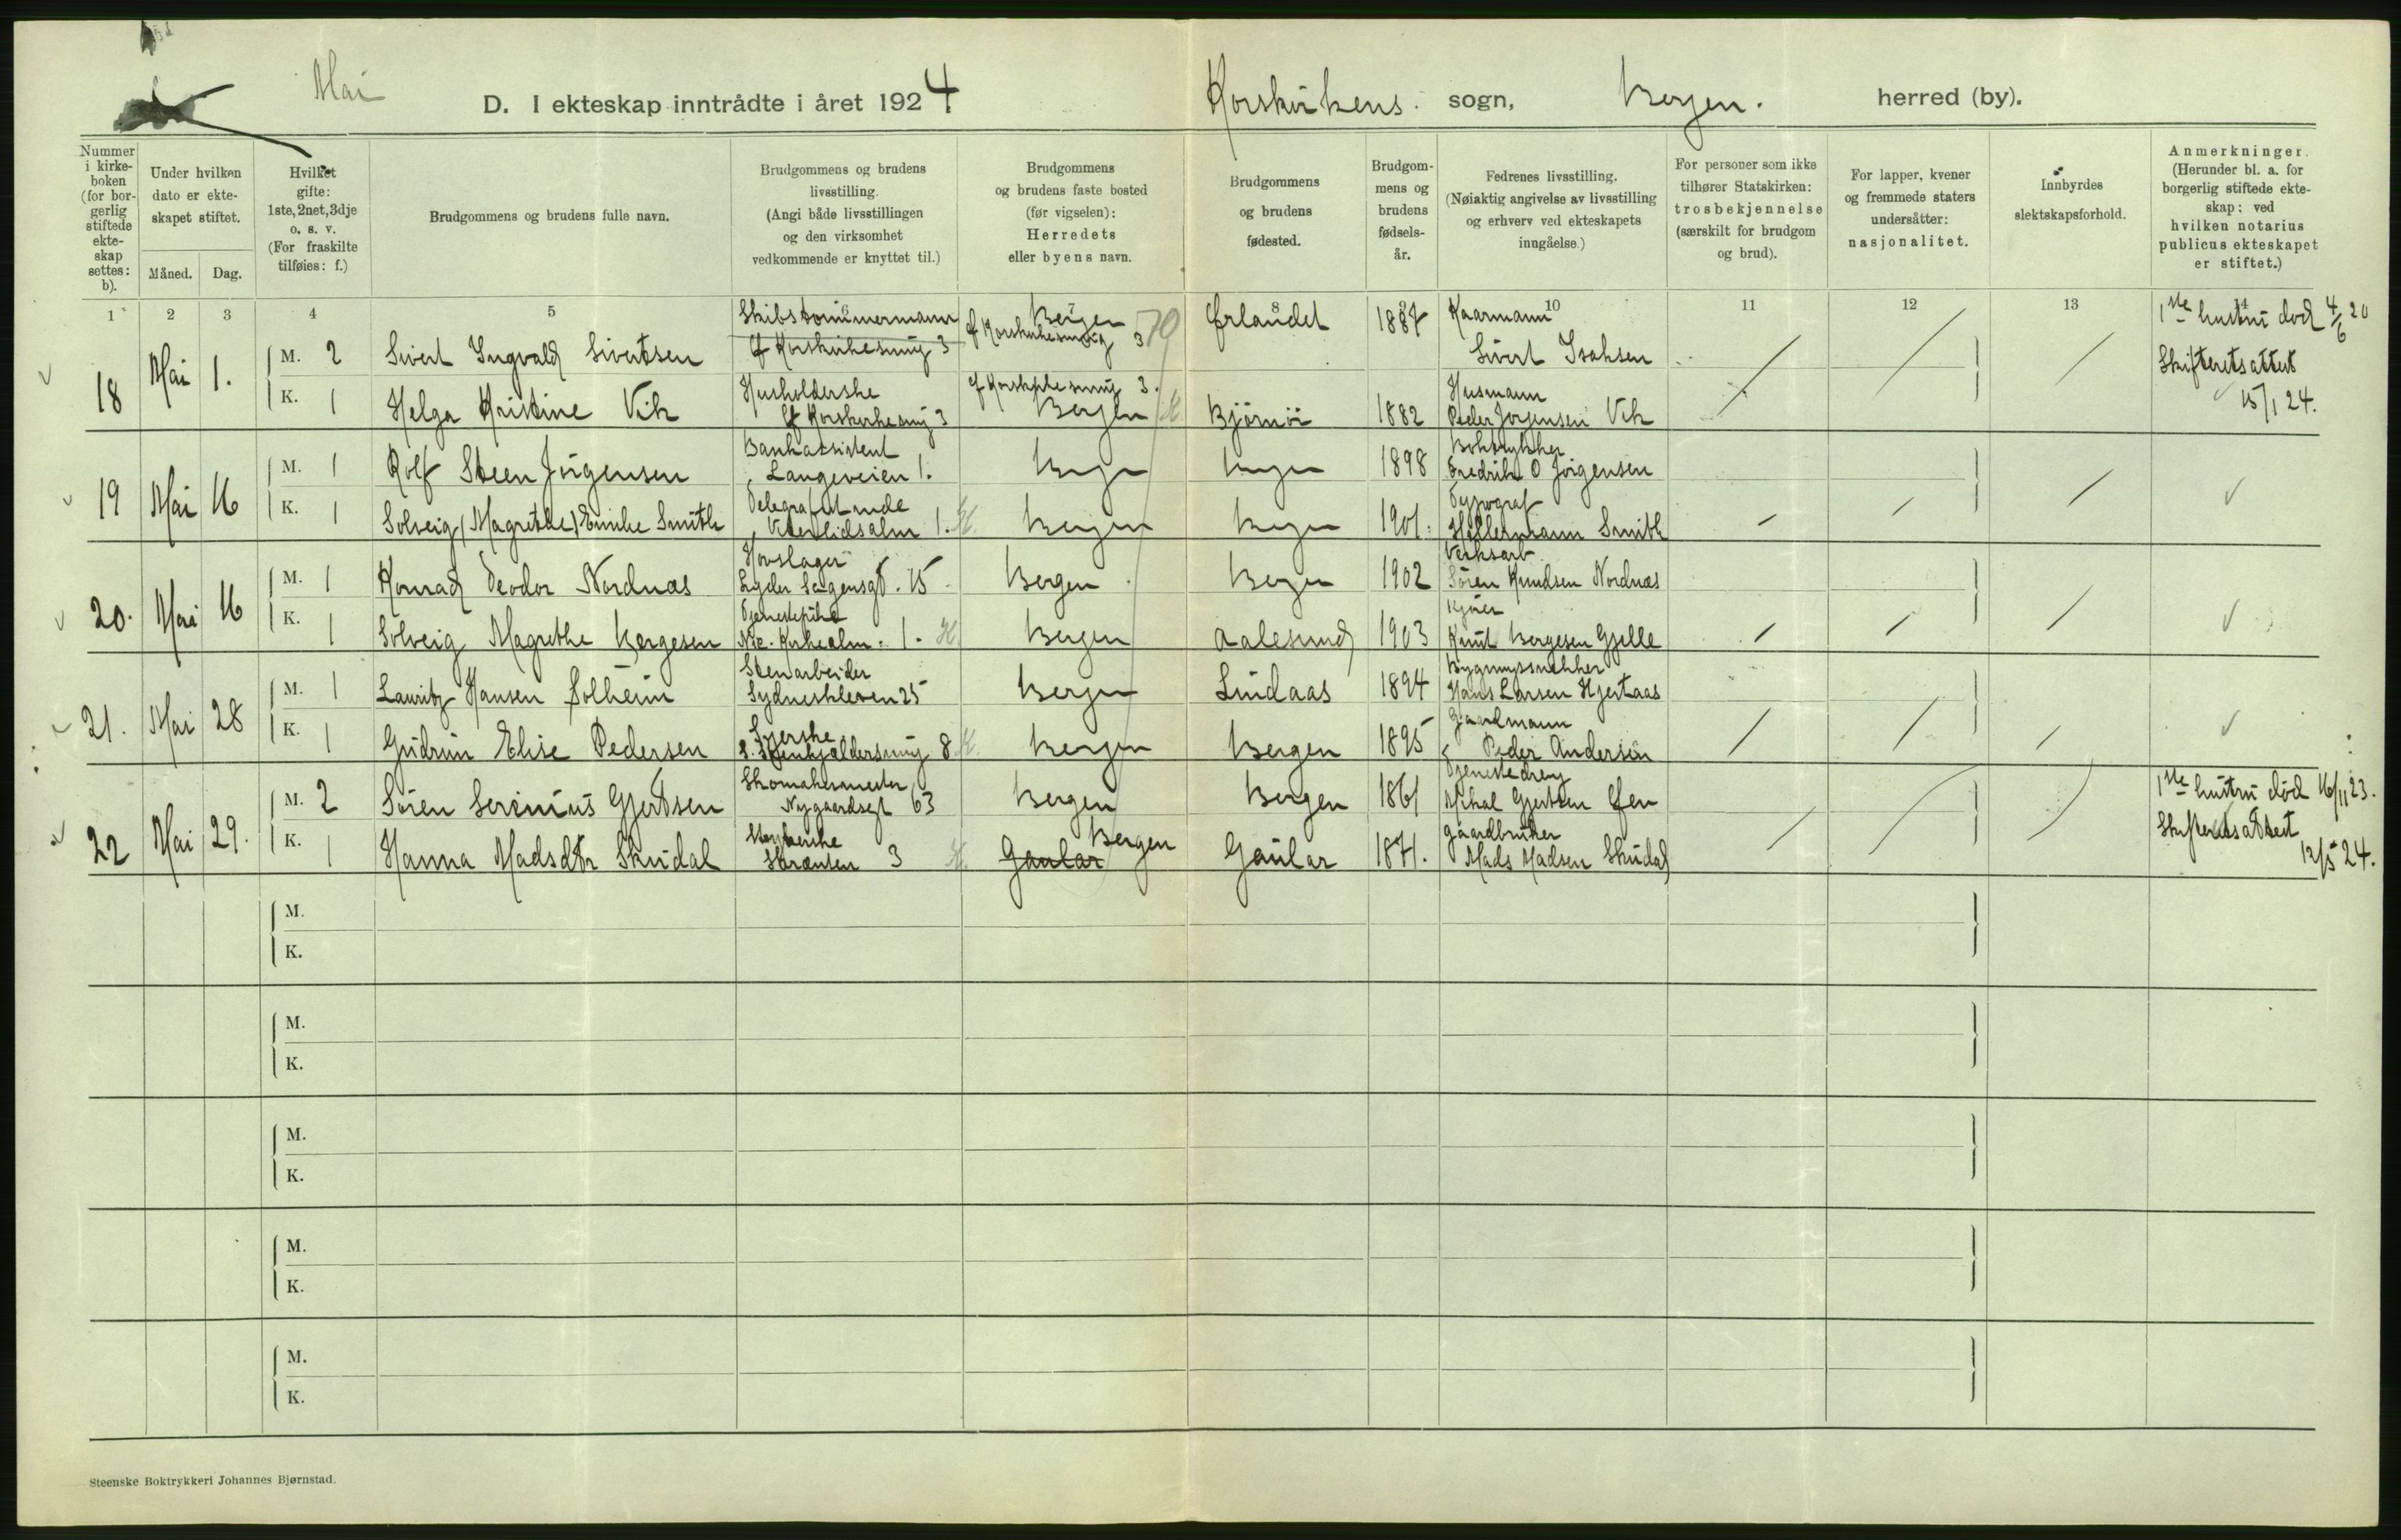 Mai
D. I ekteskap inntrådte i året 1924
Korskirkens sogn, Bergen. herred (by).
Nummer i kirke-boken (for bor-gerlig stiftede ekte-skap settes: b).
Under hvilken dato er ekte-skapet stiftet.
Måned. Dag.
Hvilket gifte: 1ste, 2net, 3dje o. s. v. (For fraskilte tilføies: f.)
Brudgommens og brudens fulle navn.
Brudgommens og brudens livsstilling. (Angi både livsstillingen og den virksomhet vedkommende er knyttet til.)
Brudgommens og brudens faste bosted (før vigselen): Herredets eller byens navn.
Brudgommens og brudens fødested.
Brudgom-mens og brudens fødsels-år.
Fedrenes livsstilling. (Nøiaktig angivelse av livsstilling og erhverv ved ekteskapets inngåelse.)
For personer som ikke tilhører Statskirken: trosbekjennelse (særskilt for brudgom og brud).
For lapper, kvener og fremmede staters undersåtter: nasjonalitet.
Innbyrdes slektskapsforhold.
Anmerkninger. (Herunder bl. a. for borgerlig stiftede ekte-skap: ved hvilken notarius publicus ekteskapet er stiftet.)
1 2 3 4 5 6 7 8 9 10 11 12 13 14
18 Mai 1.
M. 2 Sivert Ingvald Sivertsen Skibstømmermann Bergen 70 Ørlandet 1887 Kaarmann Sivert Isaksen
1ste hustru död 4/6 20
Skifteretsattest 15/1 24.
K. 1 Helga Kristine Vik Husholderske Bergen Björnör 1882 Husmann Peder Jorgensen Vik
19 Mai 16
M. 1 Rolf Steen Jörgensen Bankassistent Langeveien 1. Bergen Bergen 1898 Boktrykker Fredrik O Jörgensen
K. 1 Solveig (Magrethe) Emilie Smith Bergen Bergen 1901. Typograf Smith
20. Mai 16
M. 1 Konrad Teodor Nordnæs Hovslager 15 Bergen Bergen 1902 Verksarb. Sören Knudsen Nordnæs
K. 1 Solveig Magrethe Bergesen Tjenestepike 1. Bergen Aalesund 1903 Knut Bergesen Gjelle
21. Mai 28
M. 1 Lauritz Hansen Solheim Stenarbeider Sydneskleven 25 Bergen Lindaas 1894 Bygningssnekker Hans Larsen Hjertaas
K. 1 Gudrun Elise Pedersen Syerske 8 Bergen Bergen 1895 Gaardmann Peder Andersen
22 Mai 29.
M. 2 Sören Serenius Gjertsen Skomakermester Nygaardsgt 63 Bergen Bergen 1861 Tjenestedreng Mikal Gjertsen
1ste hustru död 16/11 23.
Skifteretsattest 12/5 24.
K. 1 Hanna Madsdtr Skudal Stranden 3 Gaular Bergen Gaular 1871. Gaardbruker Mads Madsen Skudal
M.
K.
M.
K.
M.
K.
M.
K.
M.
K.
Steenske Boktrykkeri Johannes Bjørnstad.